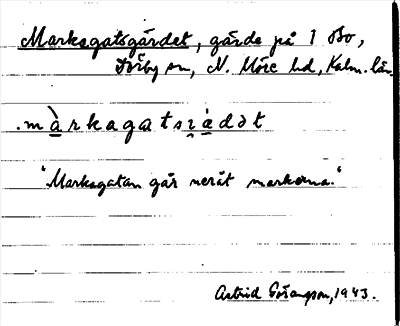 Marksgatsgärdet, gärde på 1 Bo,
Dörby sn, N. Möre hd, Kalm. län.
.màrkagatsɪàdət
"Marksgatan går neråt markerna."
Astrid Göransson, 1943.